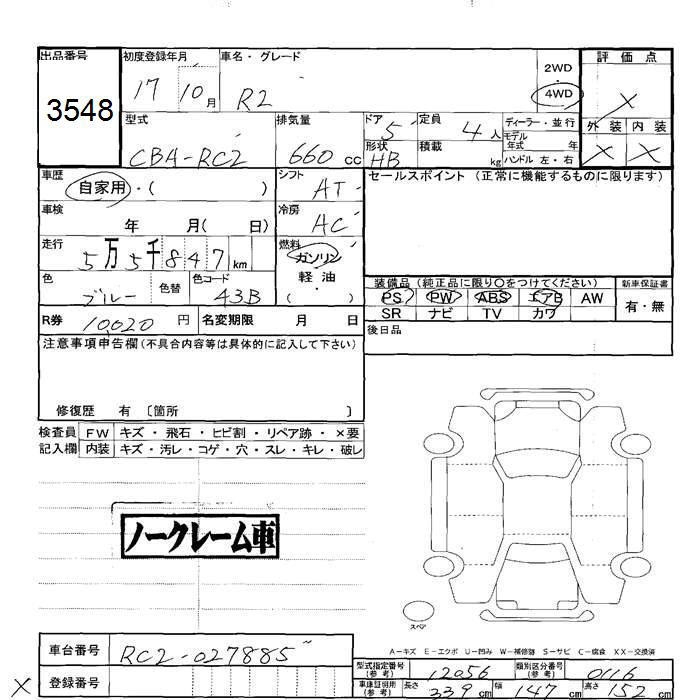 出品番号 初度登録年月 車名・グレード 2WD 評価点
3548 17 10月 R2 ・ 4WD X
型式 排気量 ドア 5 定員 4人 ディーラー・並行 外装 内装
CBA-RC2 660cc 形状 HB 積載 kg モデル年式 年 X X
ハンドル 左・右
車歴 自家用・( ) シフト AT セールスポイント (正常に機能するものに限ります)
車検 年 月( 日) 冷房 AC
走行 5万5千847km 燃料 ガソリン
軽油
・( )
色 ブルー 色替 色コード 43B 装備品 (純正品に限り○をつけてください) 新車保証書
PS PW ABS エアB AW 有・無
SR ナビ TV カワ
R券 10,020円 名変期限 月 日 後日品
注意事項申告欄(不具合内容等は具体的に記入して下さい)
修復歴 有 〔箇所 〕
検査員 FW キズ・飛石・ヒビ割・リペア跡・×要
記入欄 内装 キズ・汚レ・コゲ・穴・スレ・キレ・破レ
ノークレーム車
スペア
A-キズ E-エクボ U-凹み W-補修跡 S-サビ C-腐食 XX-交換済
車台番号 RC2-027885
X 登録番号
型式指定番号(参考) 12056 類別区分番号(参考) 0116
車庫証明用(参考) 長さ 339cm 幅 147cm 高さ 152cm